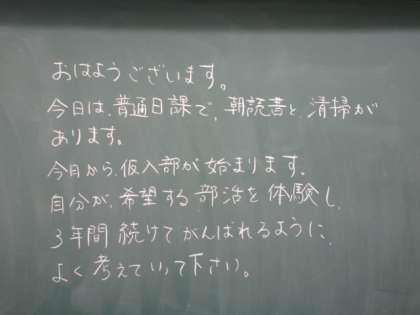 おはようございます。
今日は、普通日課で、朝読書と、清掃が
あります。
今月から、仮入部が始まります。
自分が、希望する部活を体験し、
3年間続けてがんばれるように、
よく考えていって下さい。